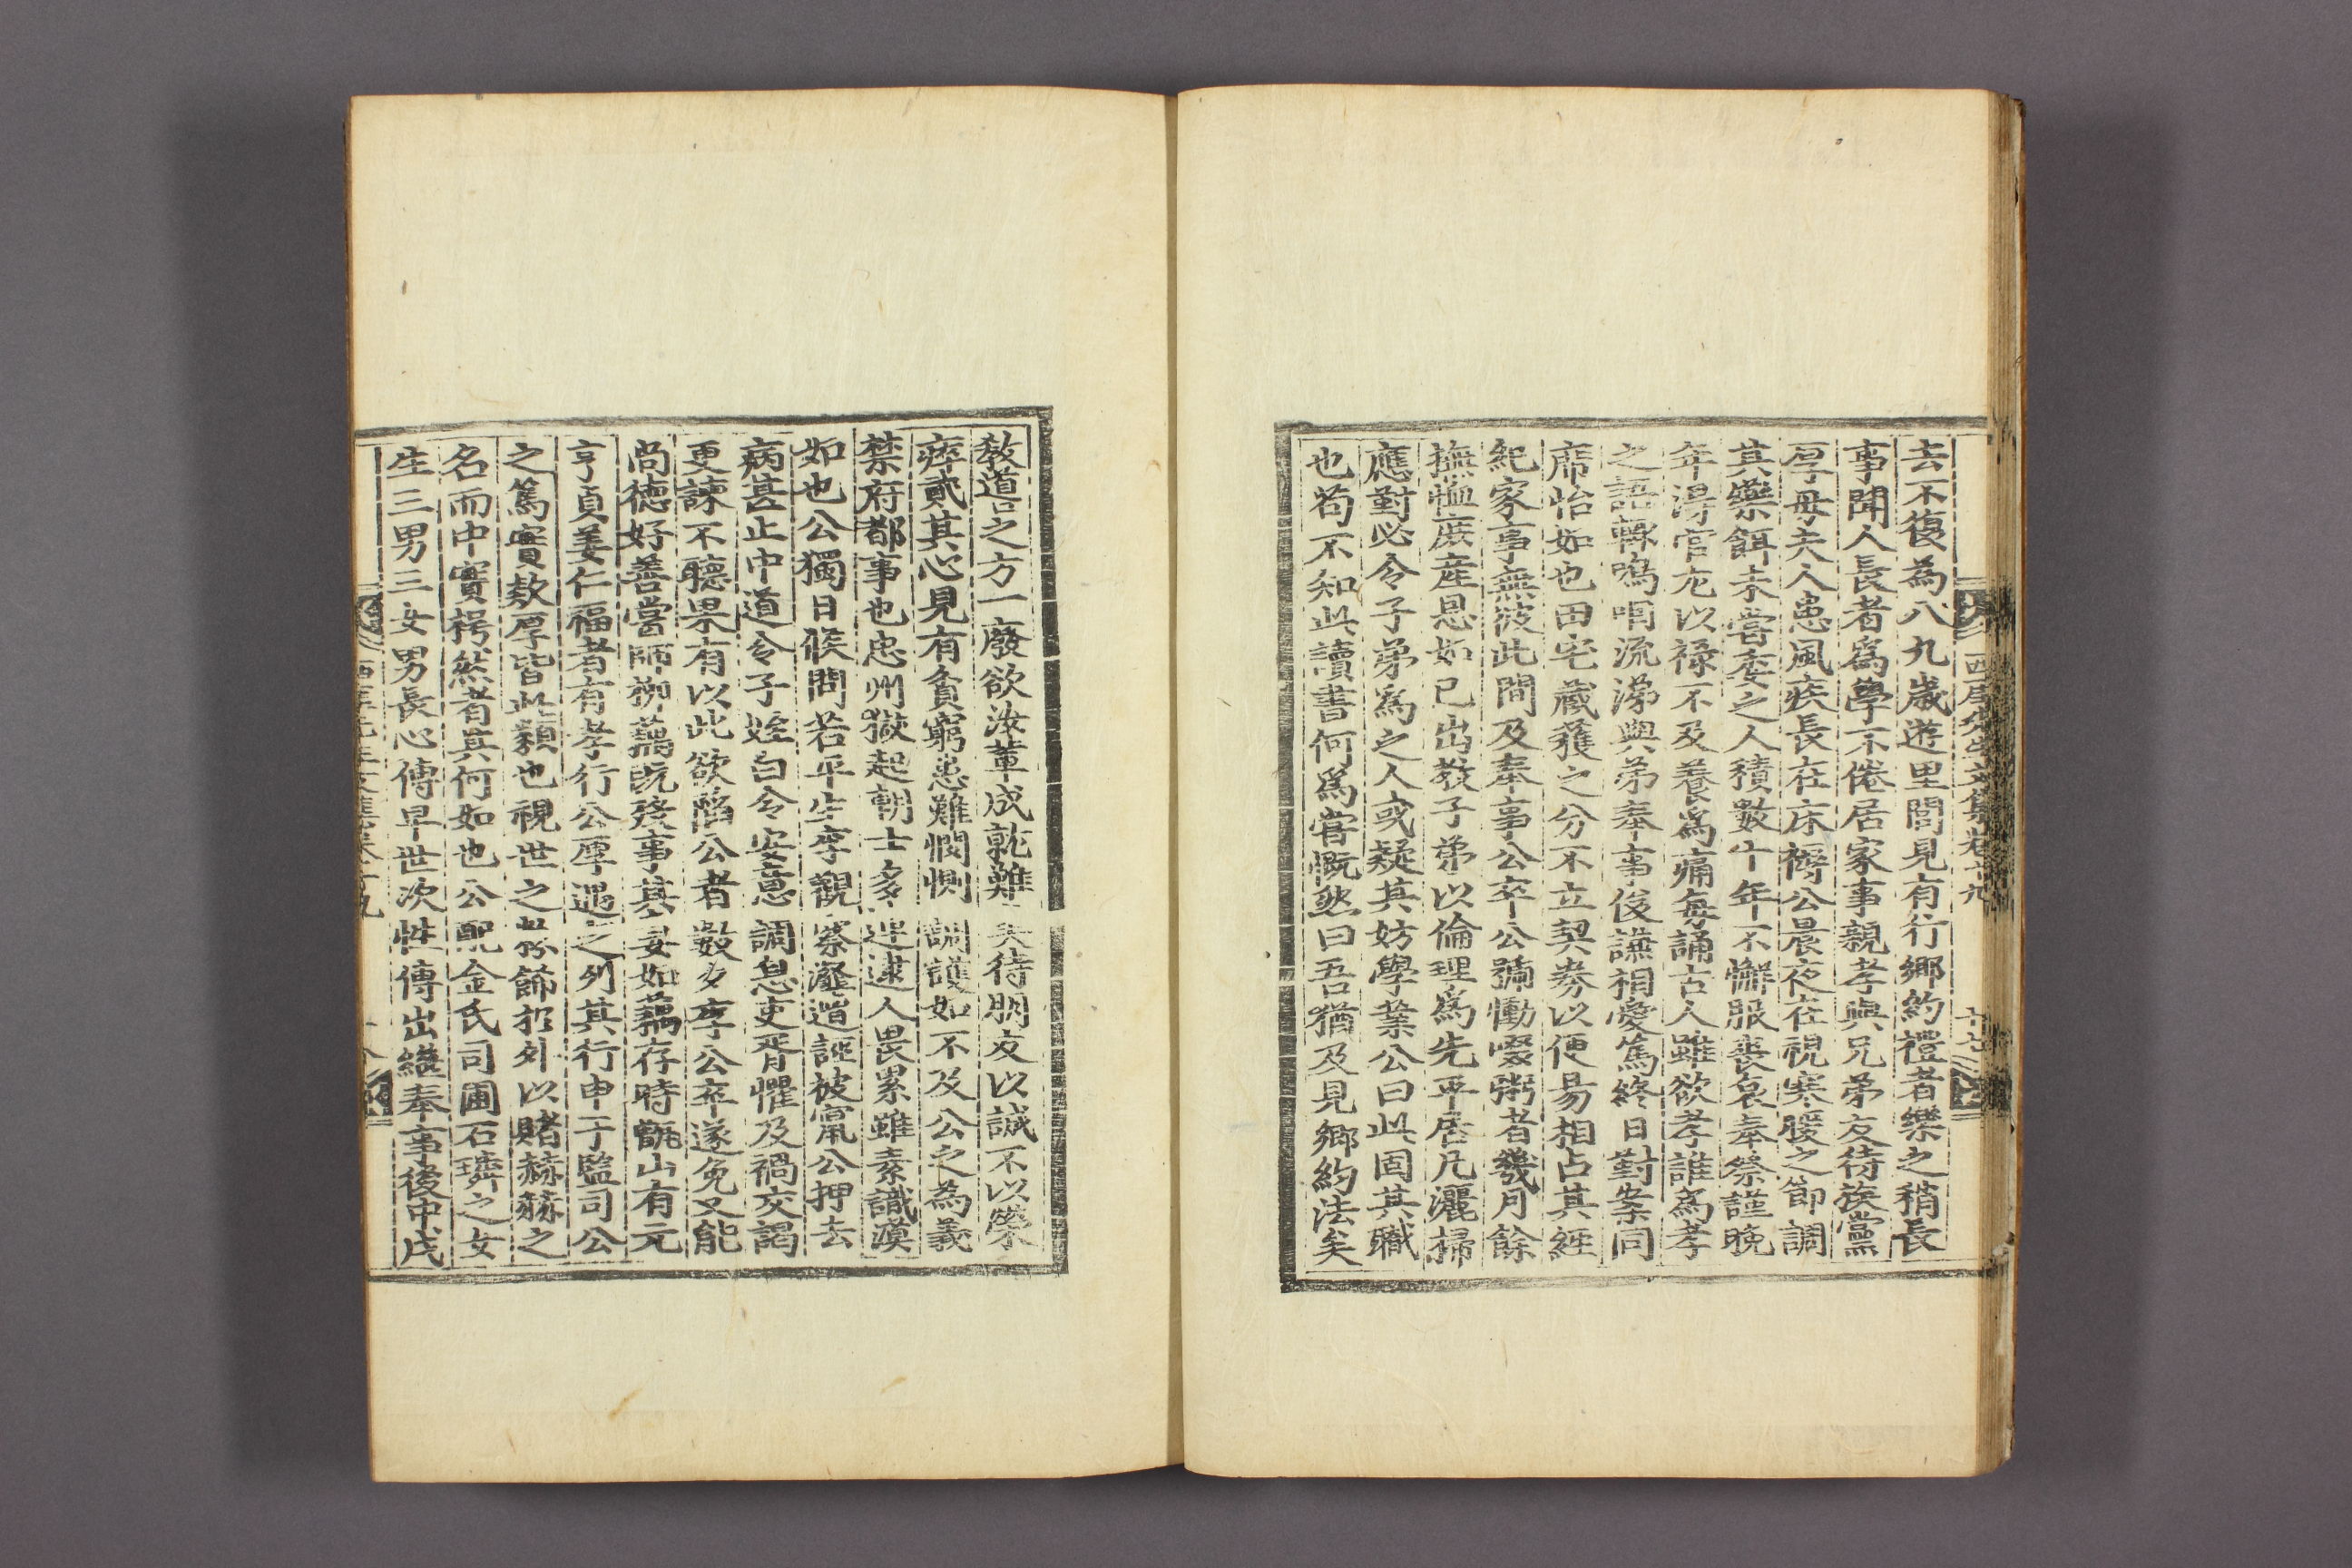 西厓先生文集卷十九
去不復為八九歲遊里閭見有行鄉約禮者樂之稍長
事聞人長者爲學不倦居家事親孝與兄弟友待族黨
厚母夫人患風疾長在床褥公晨夜在視寒暖之節調
其藥餌未嘗委之人積數十年不懈服喪哀奉祭謹晚
年得官尤以祿不及養爲痛每誦古人雖欲孝誰爲孝
之語輒嗚咽流涕與弟奉事俊謙相愛篤終日對案同
席怡如也田宅藏獲之分不立契券以便易相占其經
紀家事無彼此間及奉事公卒公號慟啜粥者幾月餘
撫恤庶産恩如已出敎子弟以倫理爲先平居凡灑掃
應對必令子弟爲之人或疑其妨學業公曰此固其職
也苟不知此讀書何爲嘗慨然曰吾猶及見鄉約法矣
敎道之方一廢欲汝輩成就難矣待朋友以誠不以榮
瘁貳其心見有貧窮患難憫惻調護如不及公之為義
禁府都事也忠州獄起朝士多逮人畏累雖素識漠
如也公獨日候問若平生李觀察瀣遭誣被竄公押去
病甚止中道令子姪白令安意調息吏胥懼及禍交謁
更諫不聽果有以此欲陷公者數多李公卒遂免又能
尚德好善嘗師柳藕旣歿事其妾如藕存時甑山有元
亨貞姜仁福者有孝行公厚遇之列其行申于監司公
之篤實款厚皆此類也視世之飾於外以賭赫赫之
名而中實枵然者其何如也公配金氏司圃石璘之女
生三男三女男長心傳早世次性傳出繼奉事後中戊